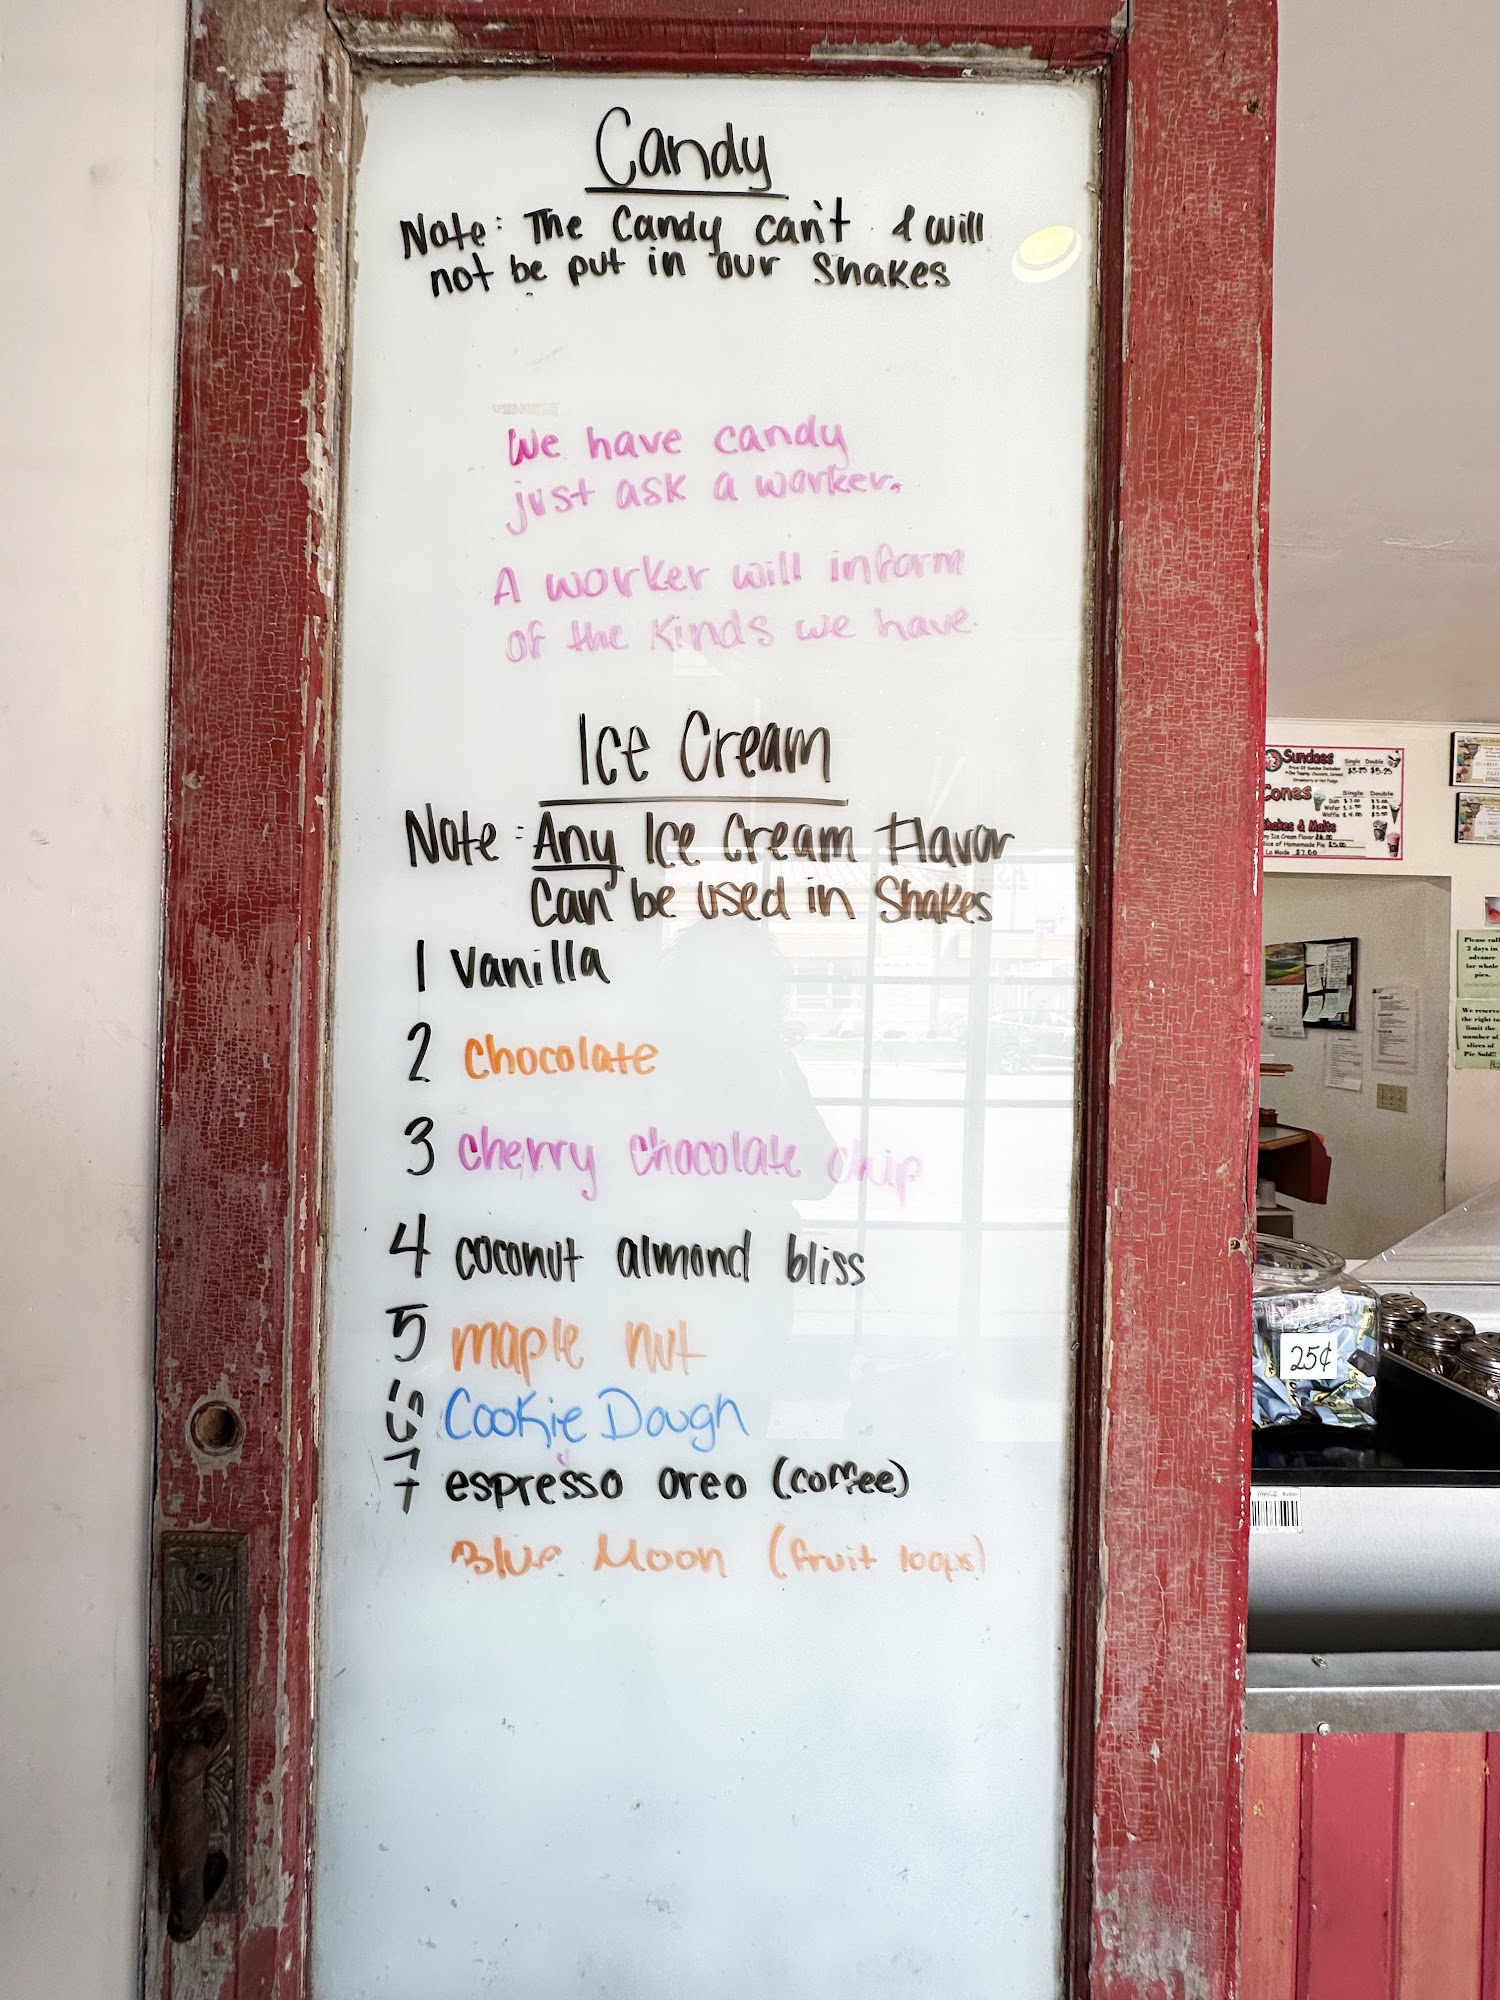 Candy
Note: The Candy can't & will
not be put in our Shakes
We have candy
just ask a worker.
A worker will inform
of the kinds we have.
Ice Cream
Note: Any Ice Cream Flavor
Can be used in Shakes
1 Vanilla
2 Chocolate
3 Cherry Chocolate chip
4 coconut almond bliss
5 maple nut
6 Cookie Dough
7 espresso oreo (coffee)
Blue Moon (fruit loops)
Sundaes Single Double
$5.25
Cones Single Double
Dish
Wafer
Waffle
Shakes & Malts
Any Ice Cream Flavor
Slice of Homemade Pie $5.00
La Mode $7.00
Please call
2 days in
advance
for whole
pies.
We reserve
the right to
limit the
number of
slices of
Pie Sold!!
25¢